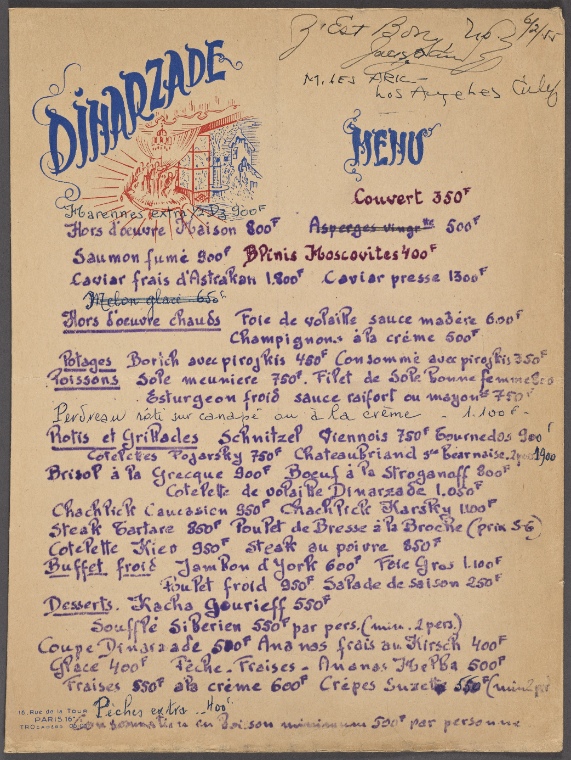 C'Est Bon 6/2/55
M. LES ARK
Los Angeles
DINARZADE
MENU
Couvert 350F
Marennes extra 1/2 Dz 900F
Hors d'œuvre Maison 800F Asperges vingrtte 500F
Saumon fumé 900F Blinis Moscovites 400F
Caviar frais d'Astrakan 1.800F Caviar presse 1300F
Melon glacé 650F
Hors d'oeuvre chauds Foie de volaille sauce madère 600F
Champignons à la crème 500F
Potages Borich avec pirojkis 450F Consommé avec pirojkis 350F
Poissons Sole meuniere 750F. Filet de Sole Bonne femme
Esturgeon froid sauce raifort ou mayonse 750F
Perdreau roti sur canapé ou à la crème - 1.100F -
Rotis et Grillades Schnitzel Viennois 750F Tournedos 900F
Cotelettes Pojarsky 750F Chateaubriand sce Béarnaise. 1900
Brisol à la Grecque 900F Boeuf à la Stroganoff 800F
Cotelette de volaille Dinarzade 1.050F
Chachlick Caucassien 950F Chachlick Karsky 1100F
Steak Tartare 850F Poulet de Bresse à la Broche (prix S-G)
Cotelette Kiev 950F Steak au poivre 850F
Buffet froid Jambon d'York 600F Foie Gras 1.100F
Poulet froid 950F Salade de saison 250F
Desserts. Kacha Gourieff 550F
Soufflé Siberien 550F par pers. (min. 2 pers.)
Coupe Dinarzade 500F Ananas frais au Kirsch 400F
Glace 400F Pêche-Fraises-Ananas Melba 500F
Fraises 550F à la crème 600F Crêpes Suzet 550F (min 2 pr)
Pêches extra 400F
16, Rue de la Tour
PARIS 16e
Consommation en Boison minimum 500F par personne